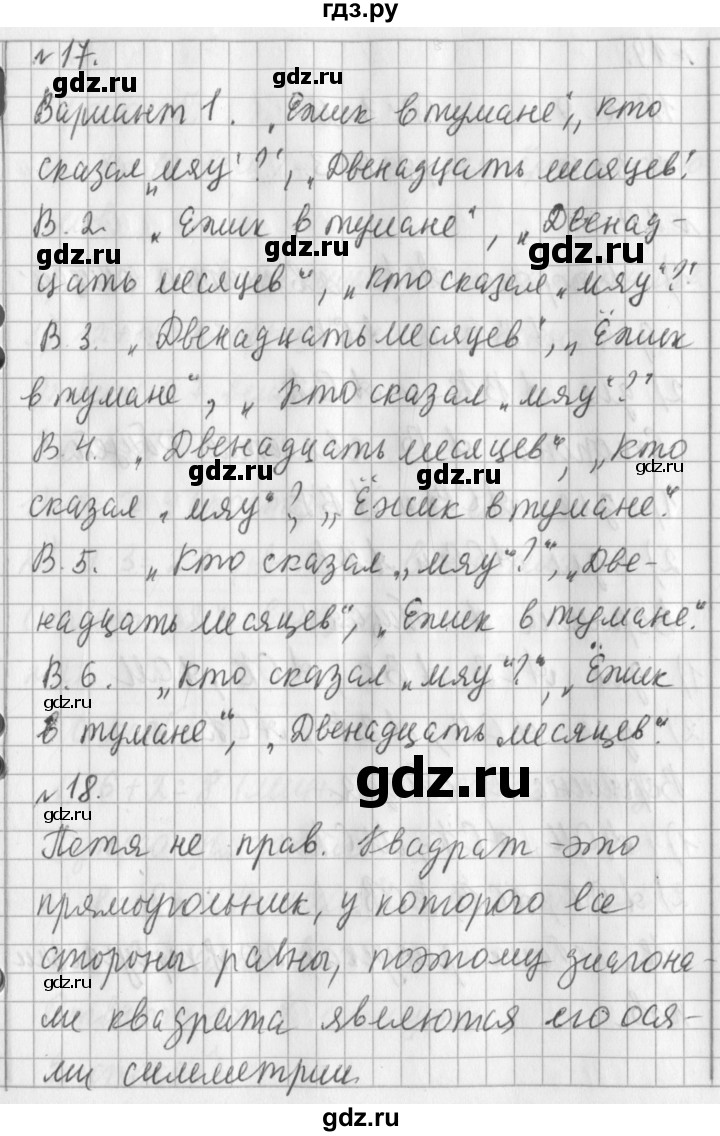 гдз.ру
№ 17.
gdz.ru
Вариант 1. „Ежик в тумане“, „кто
сказал „мяу“?“, „Двенадцать месяцев“.
gdz.ru
В. 2. „Ежик в тумане“, „Двенад-
gdz.ru gdz.ru gdz.ru
цать месяцев“, „Кто сказал „мяу“?“
В. 3. „Двенадцать месяцев“, „Ёжик
в тумане“, „Кто сказал „мяу“?“
В. 4. „Двенадцать месяцев“, „Кто
gdz.ru gdz.ru gdz.ru
сказал „мяу“?, „Ёжик в тумане“.
В. 5. „Кто сказал „мяу“?“, „Две-
надцать месяцев“, „Ежик в тумане“.
В. 6. „Кто сказал „мяу“?“, „Ёжик
gdz.ru
в тумане“, „Двенадцать месяцев“.
№ 18.
gdz.ru
gdz.ru
Петя не прав. Квадрат - это
прямоугольник, у которого все
стороны равны, поэтому диагона-
gdz.ru
ли квадрата являются его ося-
ми симметрии.
gdz.ru